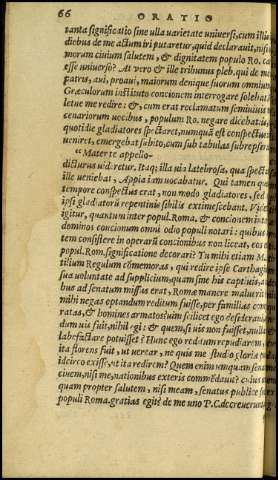 66 ORATIO
tanta significatio sine ulla uarietate uniuersi, cum illiu
diebus de me actum iri putaretur, quid declarauit, nisi
morum ciuium salutem, & dignitatem populo Ro. ca
esse uniuerso? At uero & ille tribunus pleb. qui de me
patris, aui, proaui, maiorum denique suorum omnium
Græculorum instituto concionem interrogare solebat,
letue me redire: &, cum erat reclamatum semiuiuis
cenariorum uocibus, populum Ro. negare dicebat: is,
quotidie gladiatores spectaret, nunquã est conspectus
ueniret, emergebat subito, cum sub tabulas subrepsera
“Mater te appello-
dicturus uideretur. Itaq; illa uia latebrosa, qua spectat
ille ueniebat, Appia iam uocabatur. Qui tamen quo
tempore conspectus erat, non modo gladiatores, sed
ipsi gladiatorũ repentinis sibilis extimescebant. Vide
igitur, quantum inter popul. Roma. & concionem inte
dominos concionum omni odio populi notari: quibus
tem consistere in operarũ concionibus non liceat, eos o
popul. Rom. significatione decorari? Tu mihi etiam M
tilium Regulum cõmemoras, qui redire ipse Carthagin
sua uoluntate ad supplicium, quam sine his captiuis, a
bus ad senatum missus erat, Romæ manere maluerit
mihi negas optandum reditum fuisse, per familias com
ratas, & homines armatos? uim scilicet ego desideraui,
dum uis fuit, nihil egi: & quem, si uis non fuisset, nulla
labefactare potuisset? Hunc ego reditum repudiarem,
ita florens fuit, ut uerear, ne quis me studio gloriæ put
idcirco exisse, ut ita redirem? Quem enim umquam senatus
ciuem, nisi me, nationibus exteris commẽdauit? cuius um
quam propter salutem, nisi meam, senatus publice so
populi Roma. gratias egit? de me uno P. C. decreuerunt